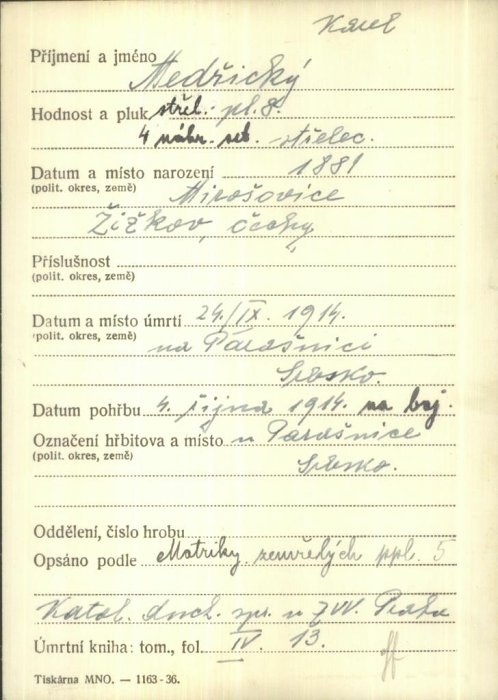 Karel
Příjmení a jméno Medřický
Hodnost a pluk střel. pl. 8.
4 náhr. set. střelec.
Datum a místo narození 1881
(polit. okres, země) Mirošovice
Žižkov, Čechy,
Příslušnost
(polit. okres, země)
Datum a místo úmrtí 24./IX. 1914.
(polit. okres, země) na Parašnici
Srbsko.
Datum pohřbu 4. října 1914. na boj.
Označení hřbitova a místo u Parašnice
(polit. okres, země) Srbsko.
Oddělení, číslo hrobu
Opsáno podle Matriky zemřelých ppl. 5
Katol. duch. spr. u ZVV. Praha
Úmrtní kniha: tom., fol. IV. 13.
Tiskárna MNO. — 1163-36.